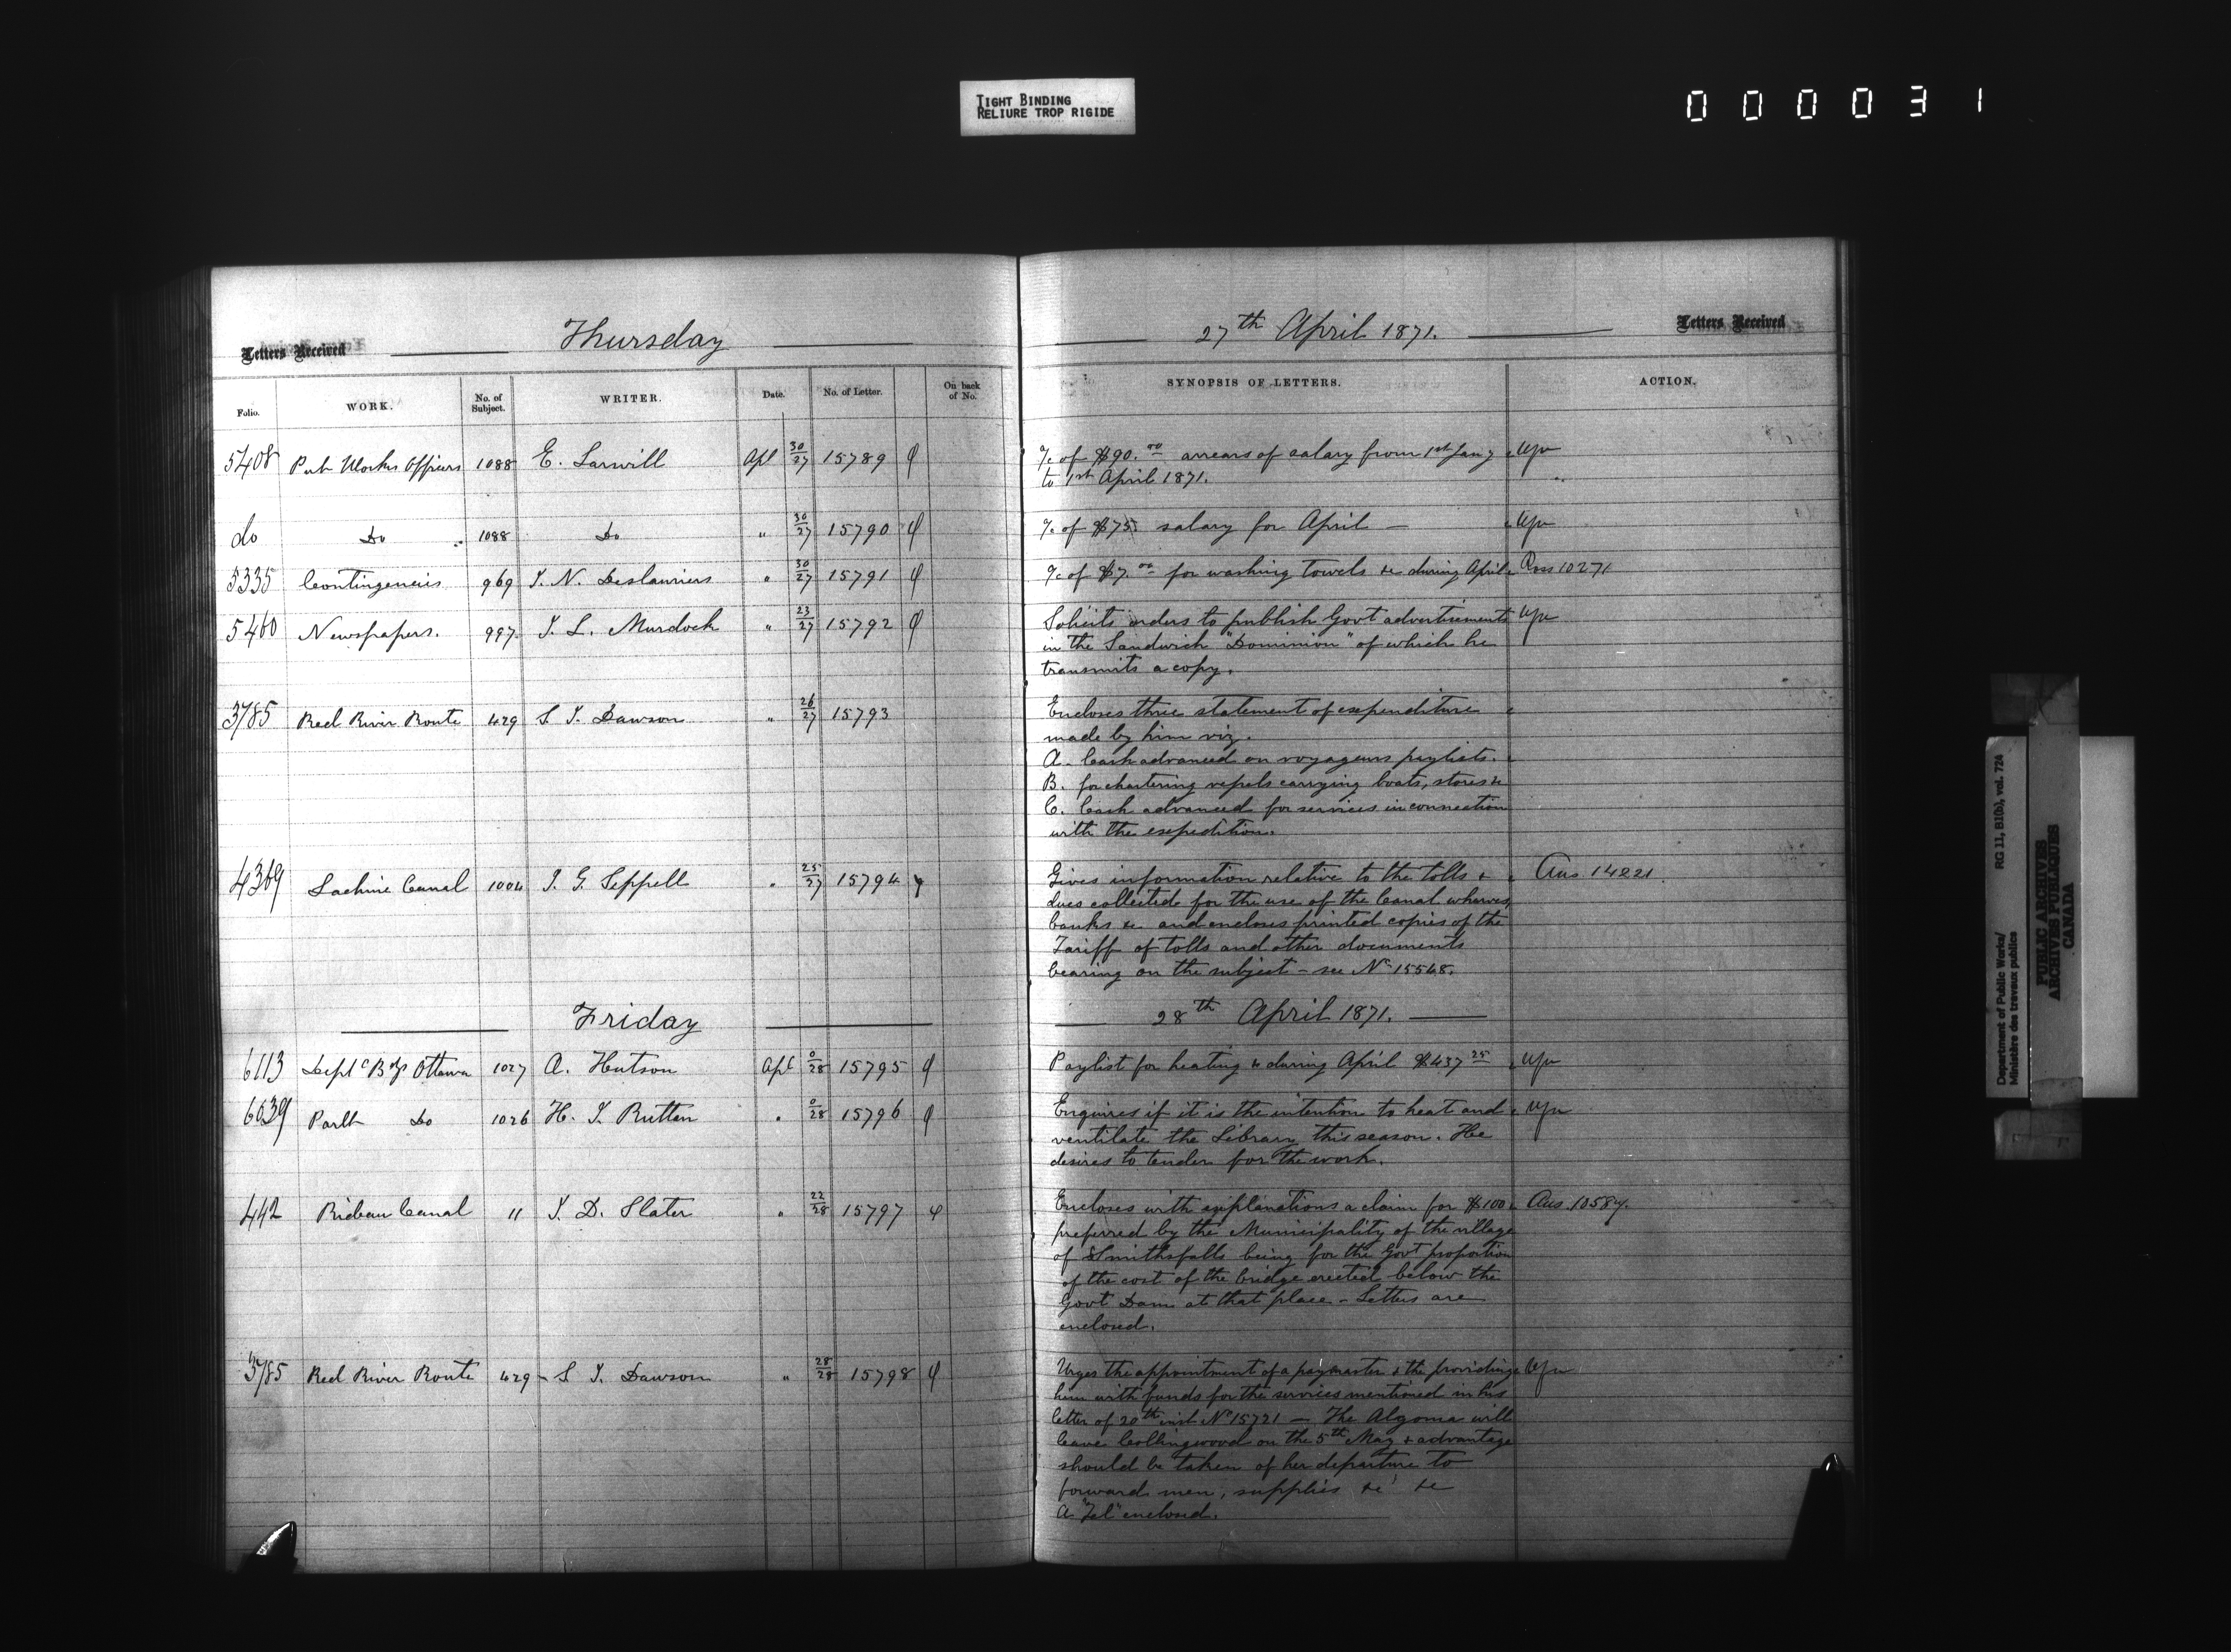 TIGHT BINDING
RELIURE TROP RIGIDE
000031
Letters Received Thursday 27th April 1871. Letters Received
Folio. WORK. No. of Subject. WRITER. Date. No. of Letter. On back of No. SYNOPSIS OF LETTERS. ACTION.
5408 Pub Works Officers 1088 E. Larwill Apl 30/27 15789 a/c of $90.00 arrears of salary from 1st Jany
to 1st April 1871.
do Do 1088 Do " 30/27 15790 a/c of $75 salary for April —
5335 Contingencies 969 J. N. Deslauriers " 30/27 15791 a/c of $7.00 for washing towels &c during April Ans 10271
5460 Newspapers. 997 J. L. Murdoch " 23/27 15792 Solicits orders to publish Govt advertisements
in the Sandwich "Dominion" of which he
transmits a copy.
3785 Red River Route 429 S. J. Dawson " 26/27 15793 Encloses three statement of expenditure
made by him viz.
A. Cash advanced on voyageurs paylists.
B. for chartering vessels carrying boats, stores &c
C. Cash advanced for services in connection
with the expedition.
4369 Lachine Canal 1004 J. G. Seppell " 25/27 15794 Gives information relative to the tolls &
dues collected for the use of the Canal wharves,
banks &c and encloses printed copies of the
Tariff of tolls and other documents
bearing on the subject – see No 15548. Ans 14221
Friday 28th April 1871.
6113 Deptl Bgs Ottawa 1027 A. Hutson Apl 0/28 15795 Paylist for heating &c during April $437.25
6039 Parlt Do 1026 H. J. Ruttan " 0/28 15796 Enquires if it is the intention to heat and
ventilate the Library this season. He
desires to tender for the work.
442 Rideau Canal 11 J. D. Slater " 22/28 15797 Encloses with explanations a claim for $100 Ans 10584.
preferred by the Municipality of the village
of Smithsfalls being for the Govt proportion
of the cost of the bridge erected below the
Govt Dam at that place – Letters are
enclosed.
3785 Red River Route 429 S J. Dawson " 28/28 15798 Urges the appointment of a paymaster & the providing
him with funds for the services mentioned in his
letter of 20th inst No 15721 — The Algoma will
leave Collingwood on the 5th May & advantage
should be taken of her departure to
forward men, supplies &c &c
A "Tel" enclosed.
Department of Public Works/ RG 11, B1(b), vol. 724
Ministère des travaux publics
PUBLIC ARCHIVES
ARCHIVES PUBLIQUES
CANADA